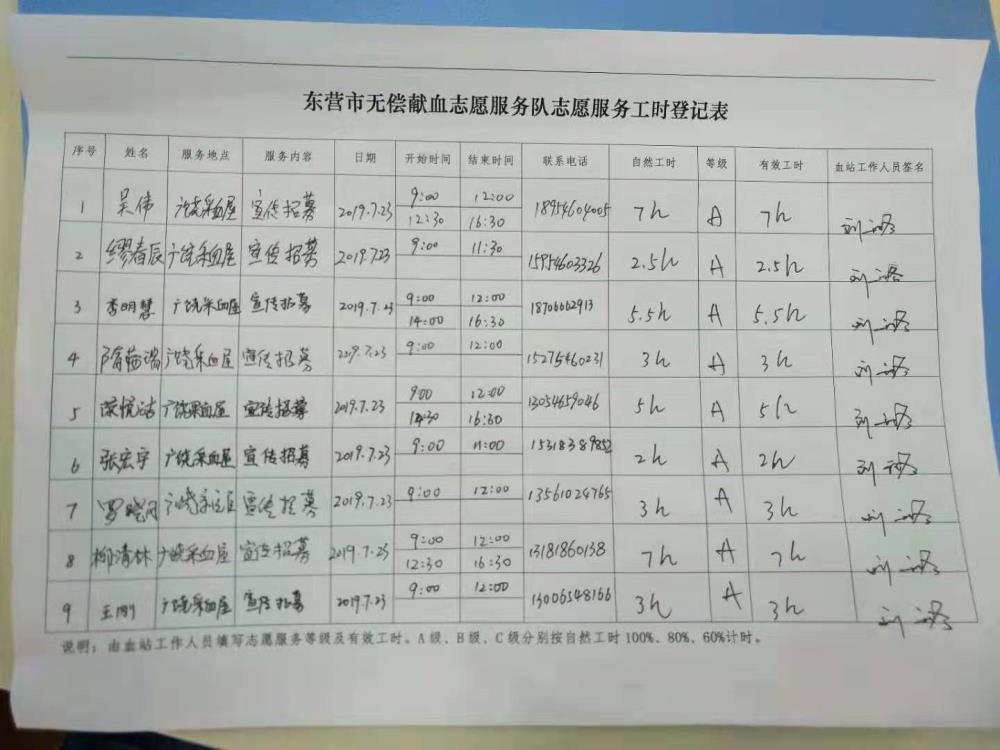 东营市无偿献血志愿服务队志愿服务工时登记表
序号 姓名 服务地点 服务内容 日期 开始时间 结束时间 联系电话 自然工时 等级 有效工时 血站工作人员签名
1 吴伟 广饶采血屋 宣传招募 2019.7.23 9:00 12:00 18954604005 7h A 7h
12:30 16:30
2 缪春辰 广饶采血屋 宣传招募 2019.7.23 9:00 11:30 15954603326 2.5h A 2.5h
3 李明慧 广饶采血屋 宣传招募 2019.7.23 9:00 12:00 18706662913 5.5h A 5.5h
14:00 16:30
4 广饶采血屋 宣传招募 2019.7.23 9:00 12:00 15275460231 3h A 3h
5 广饶采血屋 宣传招募 2019.7.23 9:00 12:00 13054659046 5h A 5h
14:30 16:30
6 张宏宇 广饶采血屋 宣传招募 2019.7.23 9:00 11:00 15318389852 2h A 2h
7 宣传招募 2019.7.23 9:00 12:00 13561024765 3h A 3h
8 柳清林 广饶采血屋 宣传招募 2019.7.23 9:00 12:00 13181860138 7h A 7h
12:30 16:30
9 王刚 广饶采血屋 宣传招募 2019.7.23 9:00 12:00 13006548166 3h A 3h
说明：由血站工作人员填写志愿服务等级及有效工时。A级、B级、C级分别按自然工时100%、80%、60%计时。